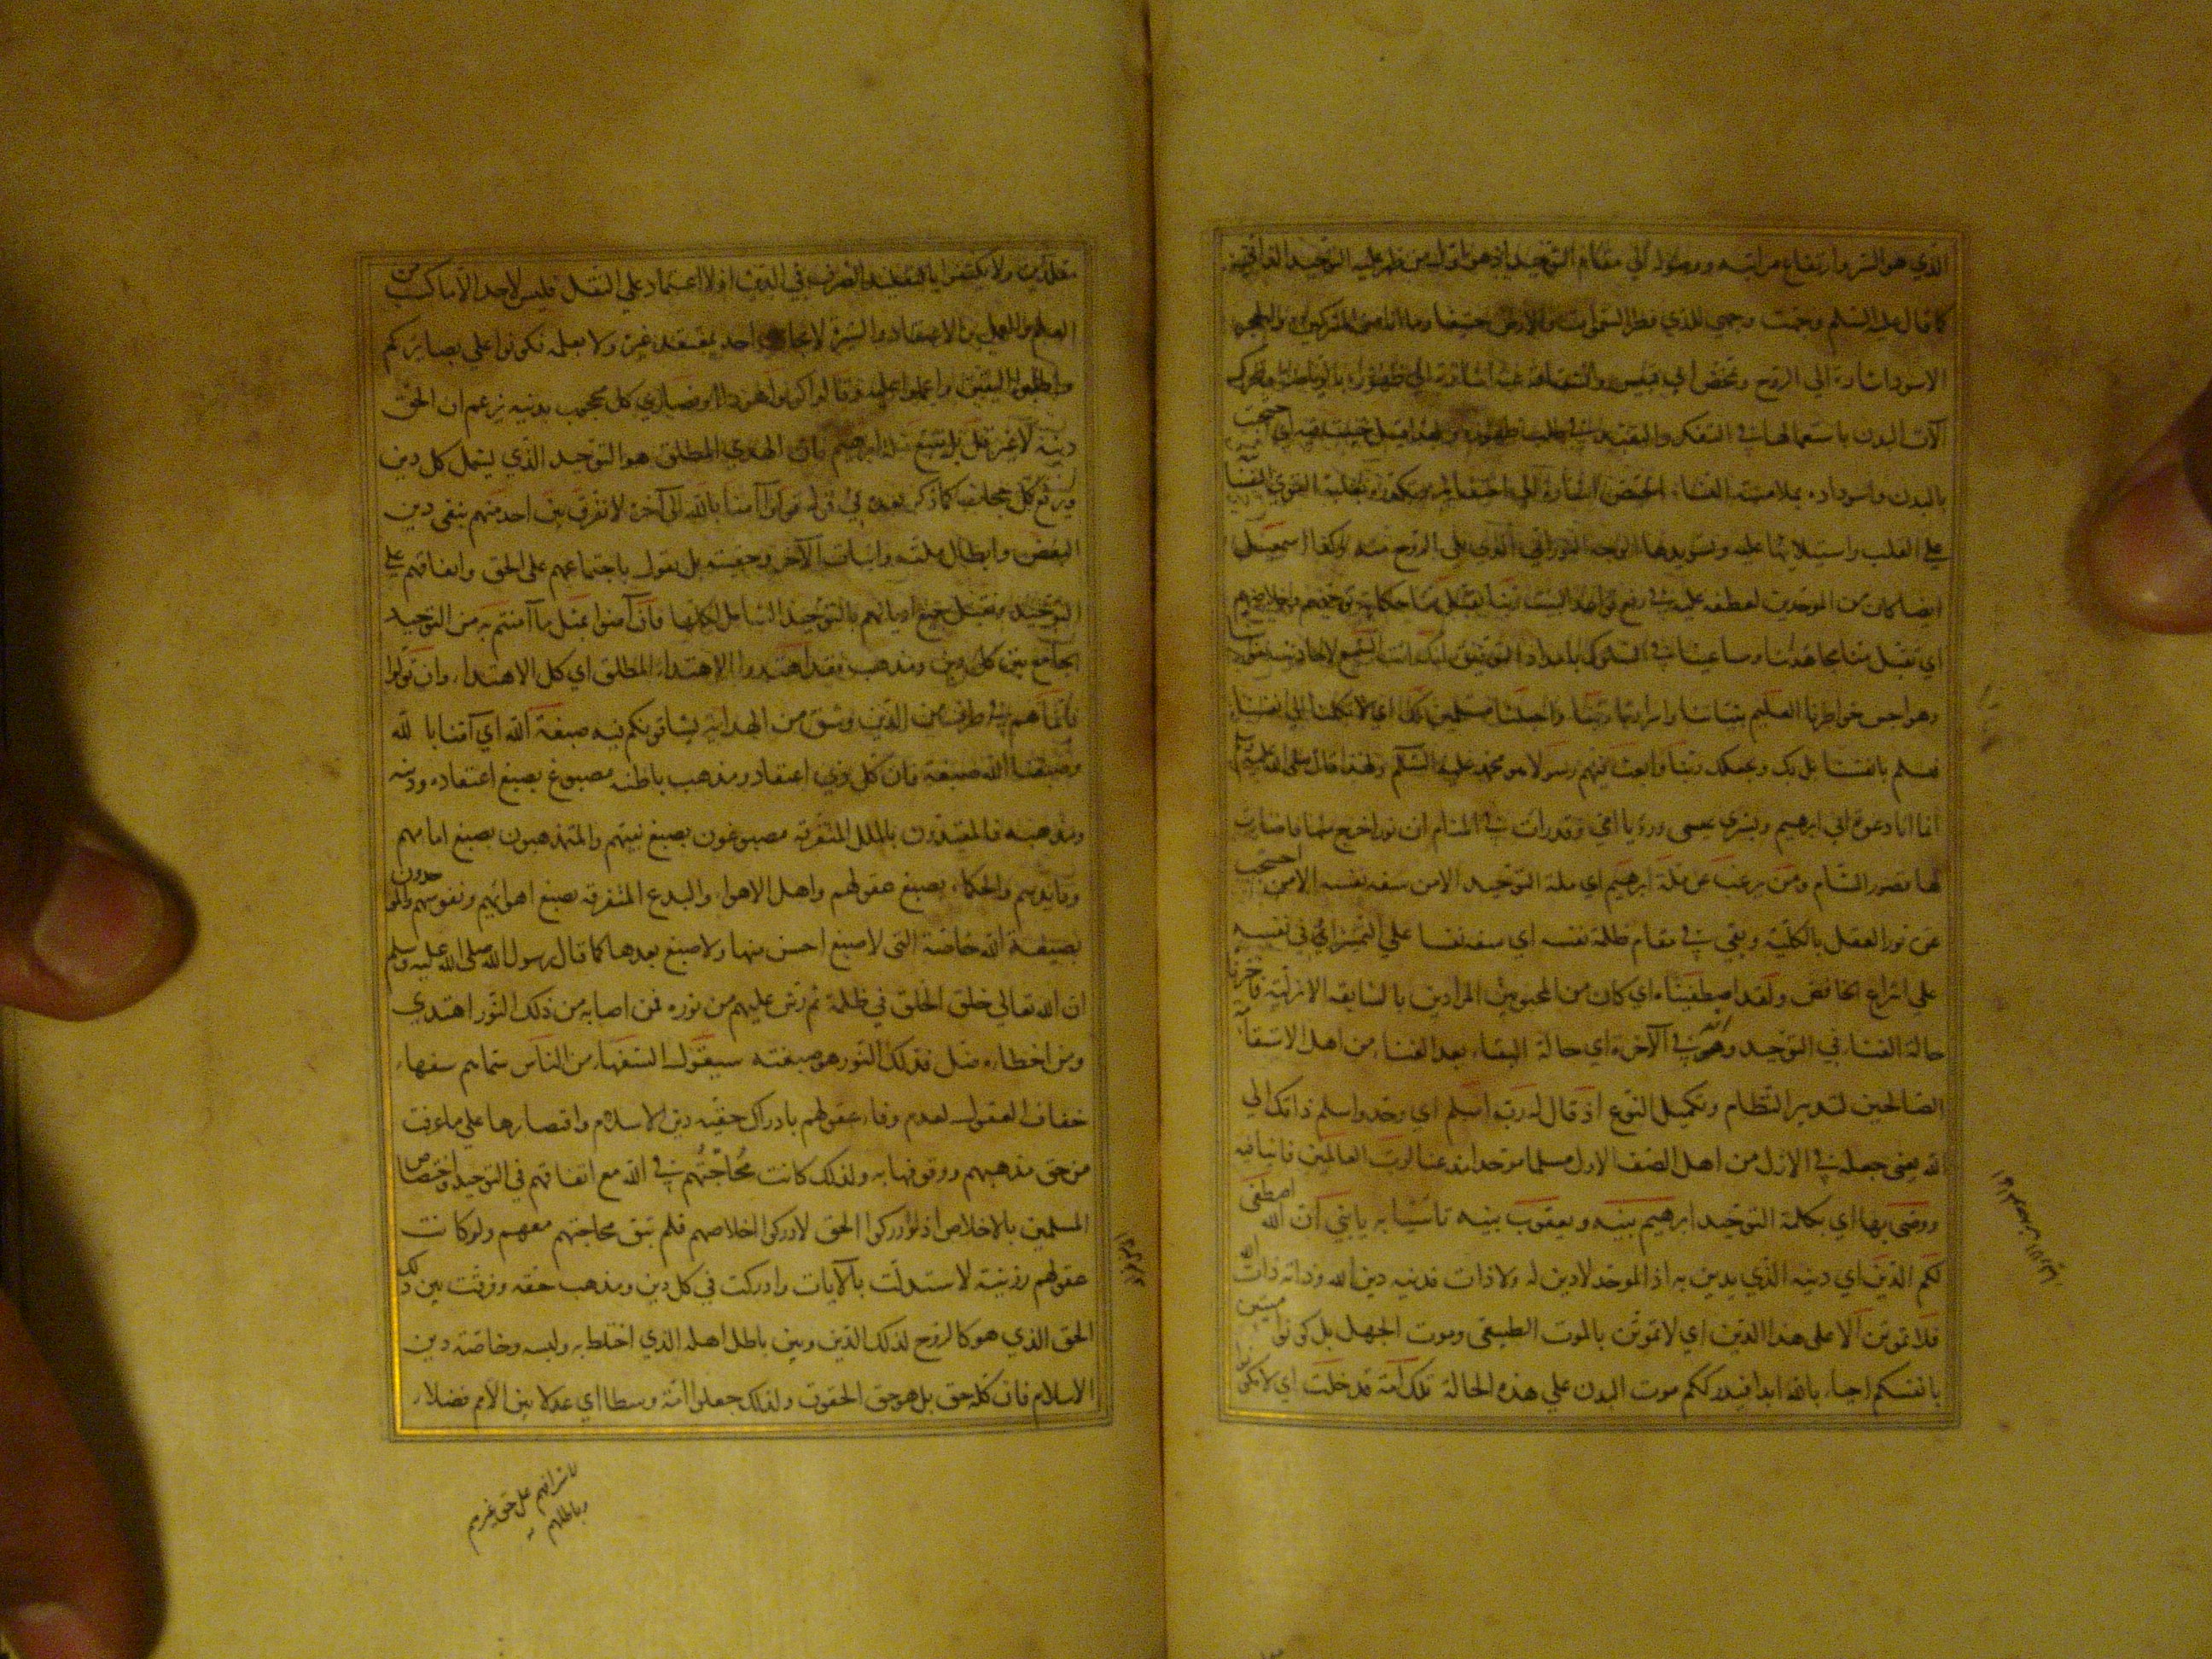 الذي هو السر وارتفاع مراتبه ووصوله الي مقام التوحيد اذ هو اول من ظهر عليه التوحيد الذاتي
كما قال عليه السلم وجهت وجهي للذي فطر السموات والارض حنيفا وما انا من المشركين والحجر
الاسود اشارة الي الروح
آلات البدن باستعمالها في التفكر والتعبد في طلب ظهوره ولهذا قيل خبيئة اي احتجب
بالبدن واسوداده بملامسة النساء الحيض اشارة الي بغلبة القوي النفسانية
علي القلب واستيلائها عليه وتسويدها الوجه النوراني الذي يلي الروح منه وكذا اسمعيل
ايضا كان من الموحدين لعطفه عليه في رفع قواعد البيت ربنا تقبل منا
اي تقبل منا مجاهدتنا ومساعينا في السلوك بامداد التوفيق انك انت السميع
وهواجس خواطرنا العليم بنياتنا واسرارنا ربنا واجعلنا مسلمين لك اي لا تكلنا الي انفسنا
فنسلم بانفسنا بل بك وبجعلك ربنا وابعث فيهم رسولا هو محمد عليه السلم ولهذا قال صلى الله عليه وسلم
انما انا دعوة ابي ابرهيم وبشرى عيسى ورؤيا امي وقد رات في المنام ان نورا خرج منها فاضاءت
لها قصور الشام ومن يرغب عن ملة ابرهيم اي ملة التوحيد الا من سفه نفسه الا من احتجب
عن نور العقل بالكلية وبقي في مقام ظلمة نفسه اي سفه نفسا علي التميز او في نفسه
علي انتزاع الخافض ولقد اصطفيناه اي كان من المحبوبين المرادين بالسابقة الازلية فاخترناه
حالة الفناء في التوحيد وانه في الآخرة اي حالة البقاء بعد الفناء من اهل الاستقامة
الصالحين لتدبير النظام وتكميل النوع اذ قال له ربه اسلم اي وحد واسلم ذاتك الي
الله يعني جعله في الازل من اهل الصف الاول مسلما موحدا مذعنا لرب العالمين فانيا فيه
ووصى بها اي بكلمة التوحيد ابرهيم بنيه ويعقوب بنيه تاسيا به يا بني ان الله اصطفى
لكم الدين اي دينه الذي يدين به اذ الموحد لا دين له ولا ذات فدينه دين الله وذاته ذات الله
فلا تموتن الا على هذا الدين اي لا تموتن بالموت الطبيعي وموت الجهل بل كونوا ميتين
بانفسكم احياء بالله ابدا فيدرككم موت البدن علي هذه الحالة تلك امة قد خلت اي لا تكونوا
مقلدين ولا تكتفوا بالتقليد الصرف في الدين اذ لا اعتماد علي النقل فليس لاحد الا ما كسب من
العلم والعمل من الاعتقاد والسيرة لا يجازى احد بمعتقد غيره ولا بعلمه فكونوا علي بصايركم
واطلبوا اليقين واعملوا عليه وقالوا كونوا هودا او نصاري كل محجوب بدينه يزعم ان الحق
دينه لا غير قل بل نتبع ملة ابرهيم فان الهدي المطلق هو التوحيد الذي يشمل كل دين
ويرفع كل حجاب كما ذكر بعده في قوله قولوا آمنا بالله الى آخره لا نفرق بين احد منهم بنفي دين
البعض وابطال ملته واثبات الآخر وحقيته بل نقول باجتماعهم على الحق واتفاقهم علي
التوحيد ونقبل جميع اديانهم بالتوحيد الشامل لكلها فان آمنوا بمثل ما آمنتم به من التوحيد
الجامع بين كل دين ومذهب فقد اهتدوا الاهتداء المطلق اي كل الاهتداء وان تولوا
فانما هم في طرف من الدين وشق من الهداية يشاقونكم فيه صبغة الله اي آمنا بالله
وصبغنا الله صبغة فان كل ذي اعتقاد ومذهب باطنه مصبوغ بصبغ اعتقاده ودينه
ومذهبه فالمتعبدون بالملل المتفرقة مصبوغون بصبغ نبيهم والمتمذهبون بصبغ امامهم
وقايدهم والحكماء بصبغ عقولهم واهل الاهواء والبدع المتفرقة بصبغ اهوائهم ونفوسهم والموحدون
بصبغة الله خاصة التي لا صبغ احسن منها ولا صبغ بعدها كما قال رسول الله صلى الله عليه وسلم
ان الله تعالي خلق الخلق في ظلمة ثم رش عليهم من نوره فمن اصابه من ذلك النور اهتدي
ومن اخطاءه ضل فذلك النور هو صبغته سيقول السفهاء من الناس سماهم سفهاء
خفاف العقول لعدم وفاء عقولهم بادراك حقية دين الاسلام واقتصارها علي ما عرفت
من حق مذهبهم ووقوفها به ولذلك كانت محاجتهم في الله مع اتفاقهم في التوحيد واختصاص
المسلمين بالاخلاص اذ لو ادركوا الحق لادركوا اخلاصهم فلم تبق محاجتهم معهم ولو كانت
عقولهم رزينة لاستدلت بالآيات وادركت في كل دين ومذهب حقه وفرقت بين ذلك
الحق الذي هو كالروح لذلك الدين وبين باطل اهله الذي اختلط به ولبسه وخاصة دين
الاسلام فانه كله حق بل هو حق الحقوق ولذلك جعلوا امة وسطا اي عدلا بين الامم فضلاء
لاشرافهم علي حق غيرهم
وباطلهم